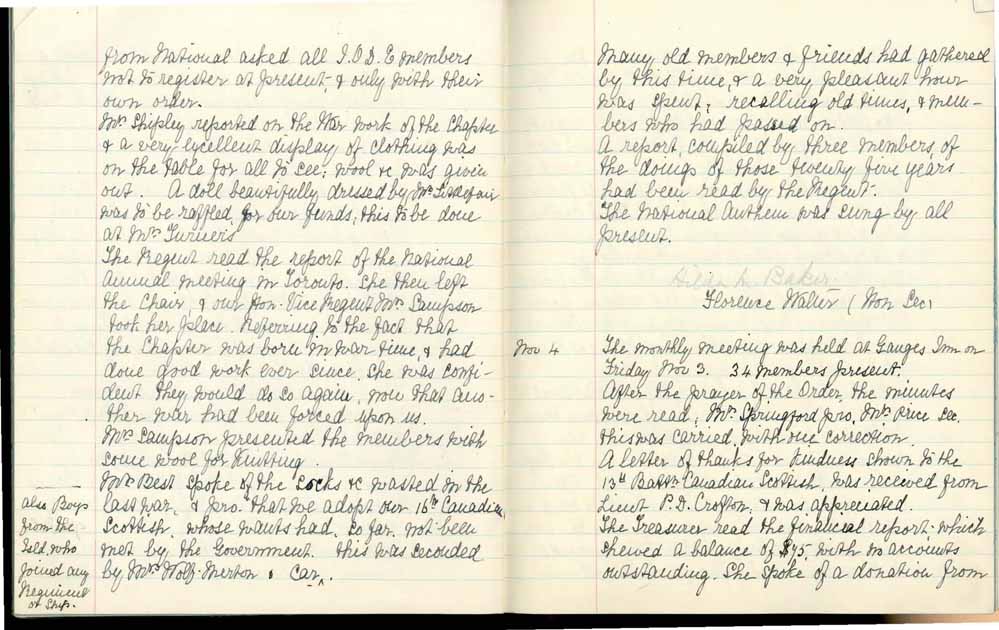 from National asked all I.O.D.E members
not to register at present, & only with their
own order.
Mrs Shipley reported on the War work of the Chapter
& a very excellent display of clothing was
on the table for all to see; wool &c was given
out. A doll beautifully dressed by Mrs
was to be raffled for our funds, this to be done
at Mrs Turner's
The Regent read the report of the National
Annual meeting in Toronto. She then left
the Chair, & our Hon. Vice Regent Mrs Sampson
took her place. Referring to the fact that
the Chapter was born in war time, & had
done good work ever since. She was confi-
dent they would do so again, now that ano-
ther war had been forced upon us.
Mrs Sampson presented the members with
some wool for knitting.
Mrs Best spoke of the socks &c wasted in the
last war, & pro. that we adopt our 16th Canadian
Scottish, whose wants had, so far, not been
met by the Government. This was seconded
by Mrs Wolf-Merton & car^.
also Boys
from the
Isld, who
joined any
Regiment
or Ship.
Many old members & friends had gathered
by this time, & a very pleasant hour
was spent, recalling old times, & mem-
bers who had passed on.
A report, compiled by three members, of
the doings of those twenty five years
had been read by the Regent.
The National Anthem was sung by all
present.
Baker
Florence Walter (Hon Sec)
Nov 4
The monthly meeting was held at Ganges Inn on
Friday Nov 3. 34 members present.
After the prayer of the Order, the minutes
were read, Mrs Springford pro. Mrs Price sec.
this was carried, with one correction.
A letter of thanks for kindness shown to the
13th Battn Canadian Scottish, was received from
Lieut P.D. Crofton, & was appreciated.
The Treasurer read the financial report, which
shewed a balance of $75, with no accounts
outstanding. She spoke of a donation from